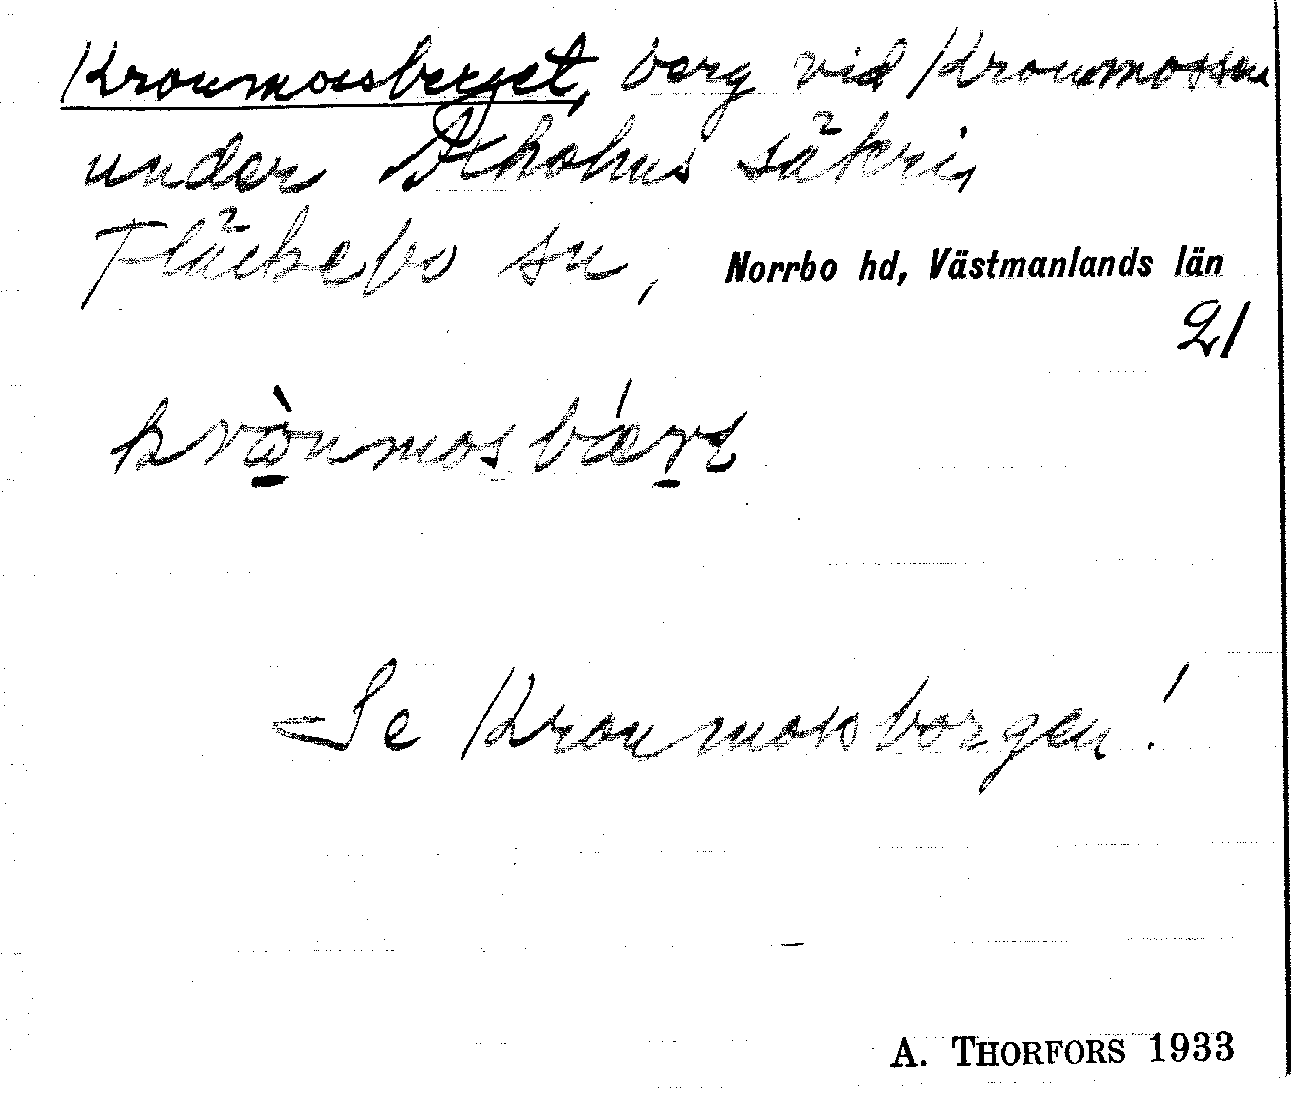 Kronmossberget, berg vid Kronmossen
under Åkhohus säteri,
Fläckebo sn, Norrbo hd, Västmanlands län
21
krònmosbǽrt
Se Kronmossborgen!
A. THORFORS 1933